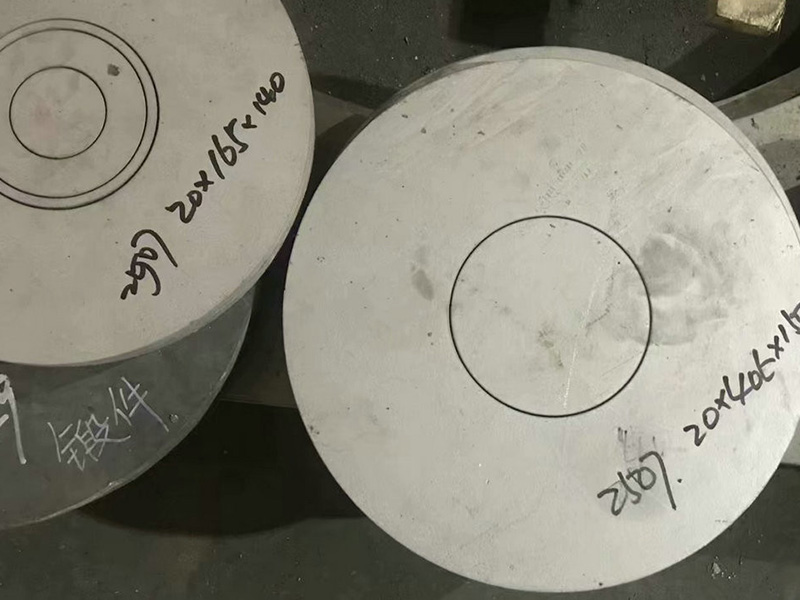 2507 20×165×140
锻件
2507. 20×405×15